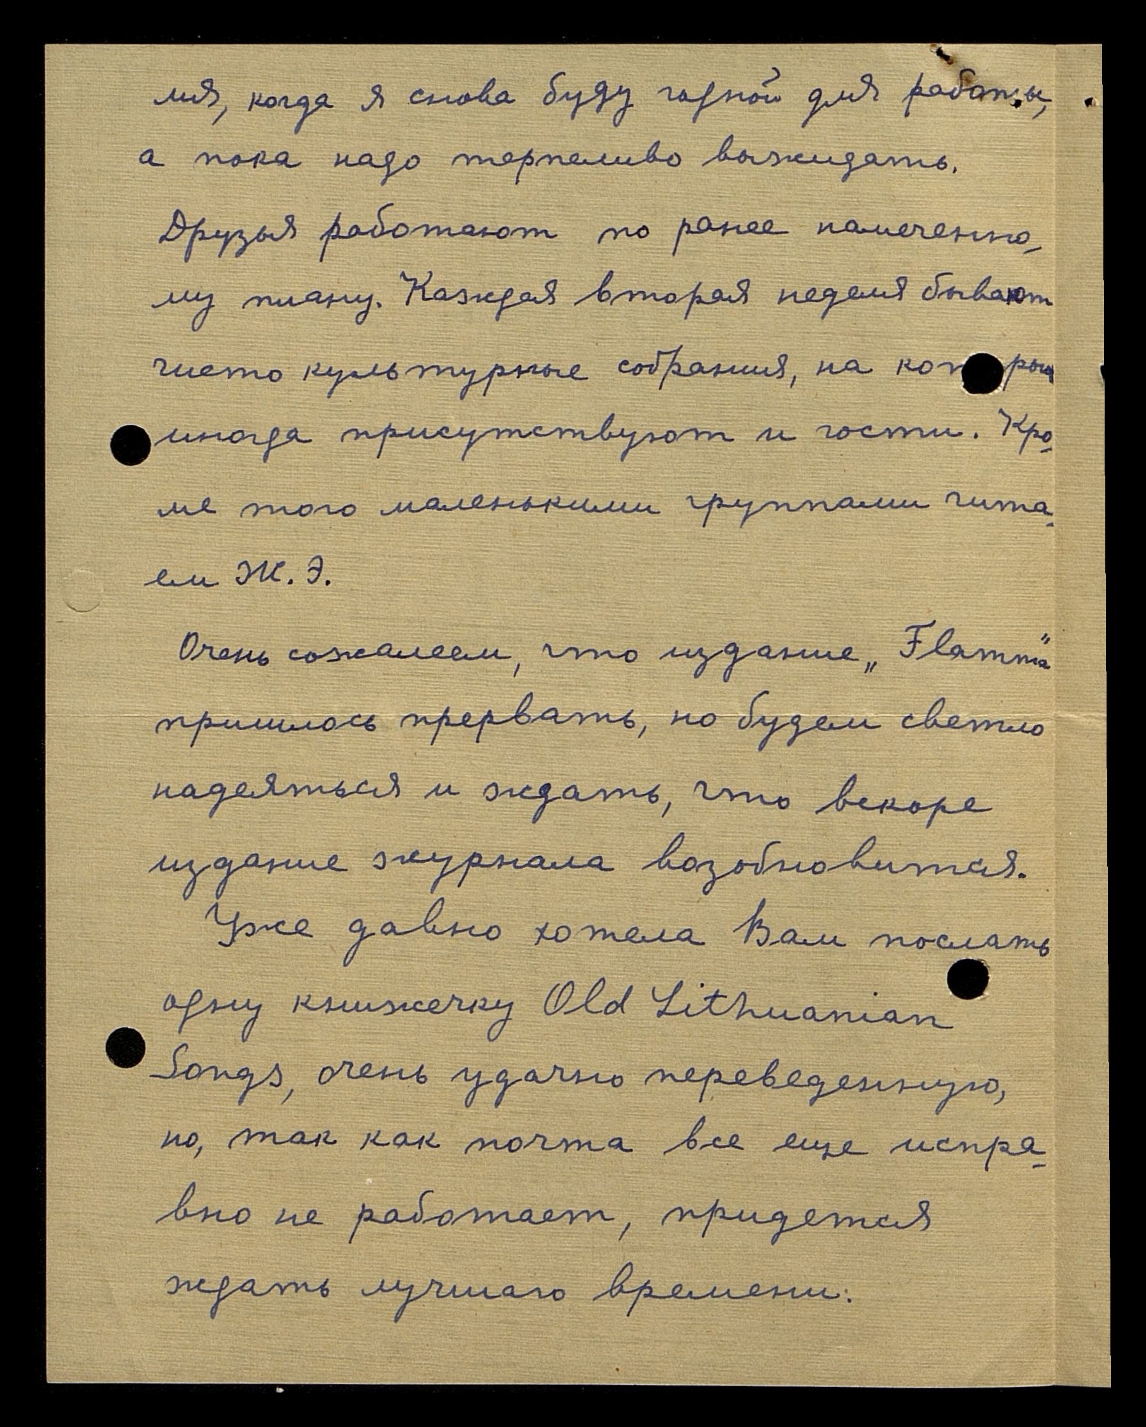 мя, когда я снова буду годной для работы,
а пока надо терпеливо выжидать.
Друзья работают по ранее намеченно-
му плану. Каждая вторая неделя бывают
чисто культурные собрания, на которых
иногда присутствуют и гости. Кро-
ме того маленькими группами чита-
ем Ж. Э.
Очень сожалеем, что издание „Flamma"
пришлось прервать, но будем светло
надеяться и ждать, что вскоре
издание журнала возобновится.
Уже давно хотела Вам послать
одну книжечку Old Lithuanian
Songs, очень удачно переведенную,
но, так как почта все еще испра-
вно не работает, придется
ждать лучшаго времени.